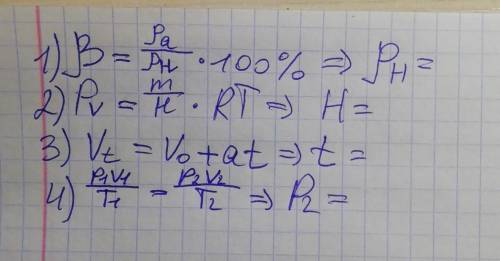 1) β = ρa/ρH · 100% ⇒ ρH =
2) Pv = m/H · RT ⇒ H =
3) Vt = V0 + at ⇒ t =
4) P1V1/T1 = P2V2/T2 ⇒ P2 =